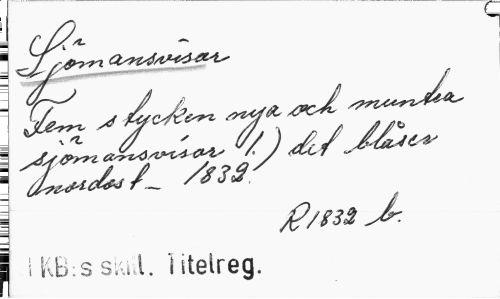 Sjömansvisor
Fem stycken nya och muntra
sjömansvisor 1.) det blåser
nordost_ 1832.
R 1832 b.
I KB:s skill. Titelreg.